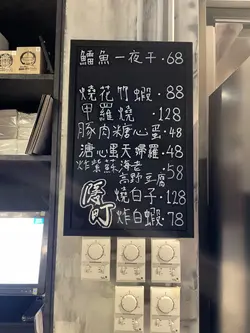 鱈魚一夜干·68
燒花竹蝦·88
甲羅燒·128
豚肉糖心蛋·48
溏心蛋天婦羅·48
炸紫蘇海老
高野豆腐·58
隱町
燒白子·128
炸白蝦·78